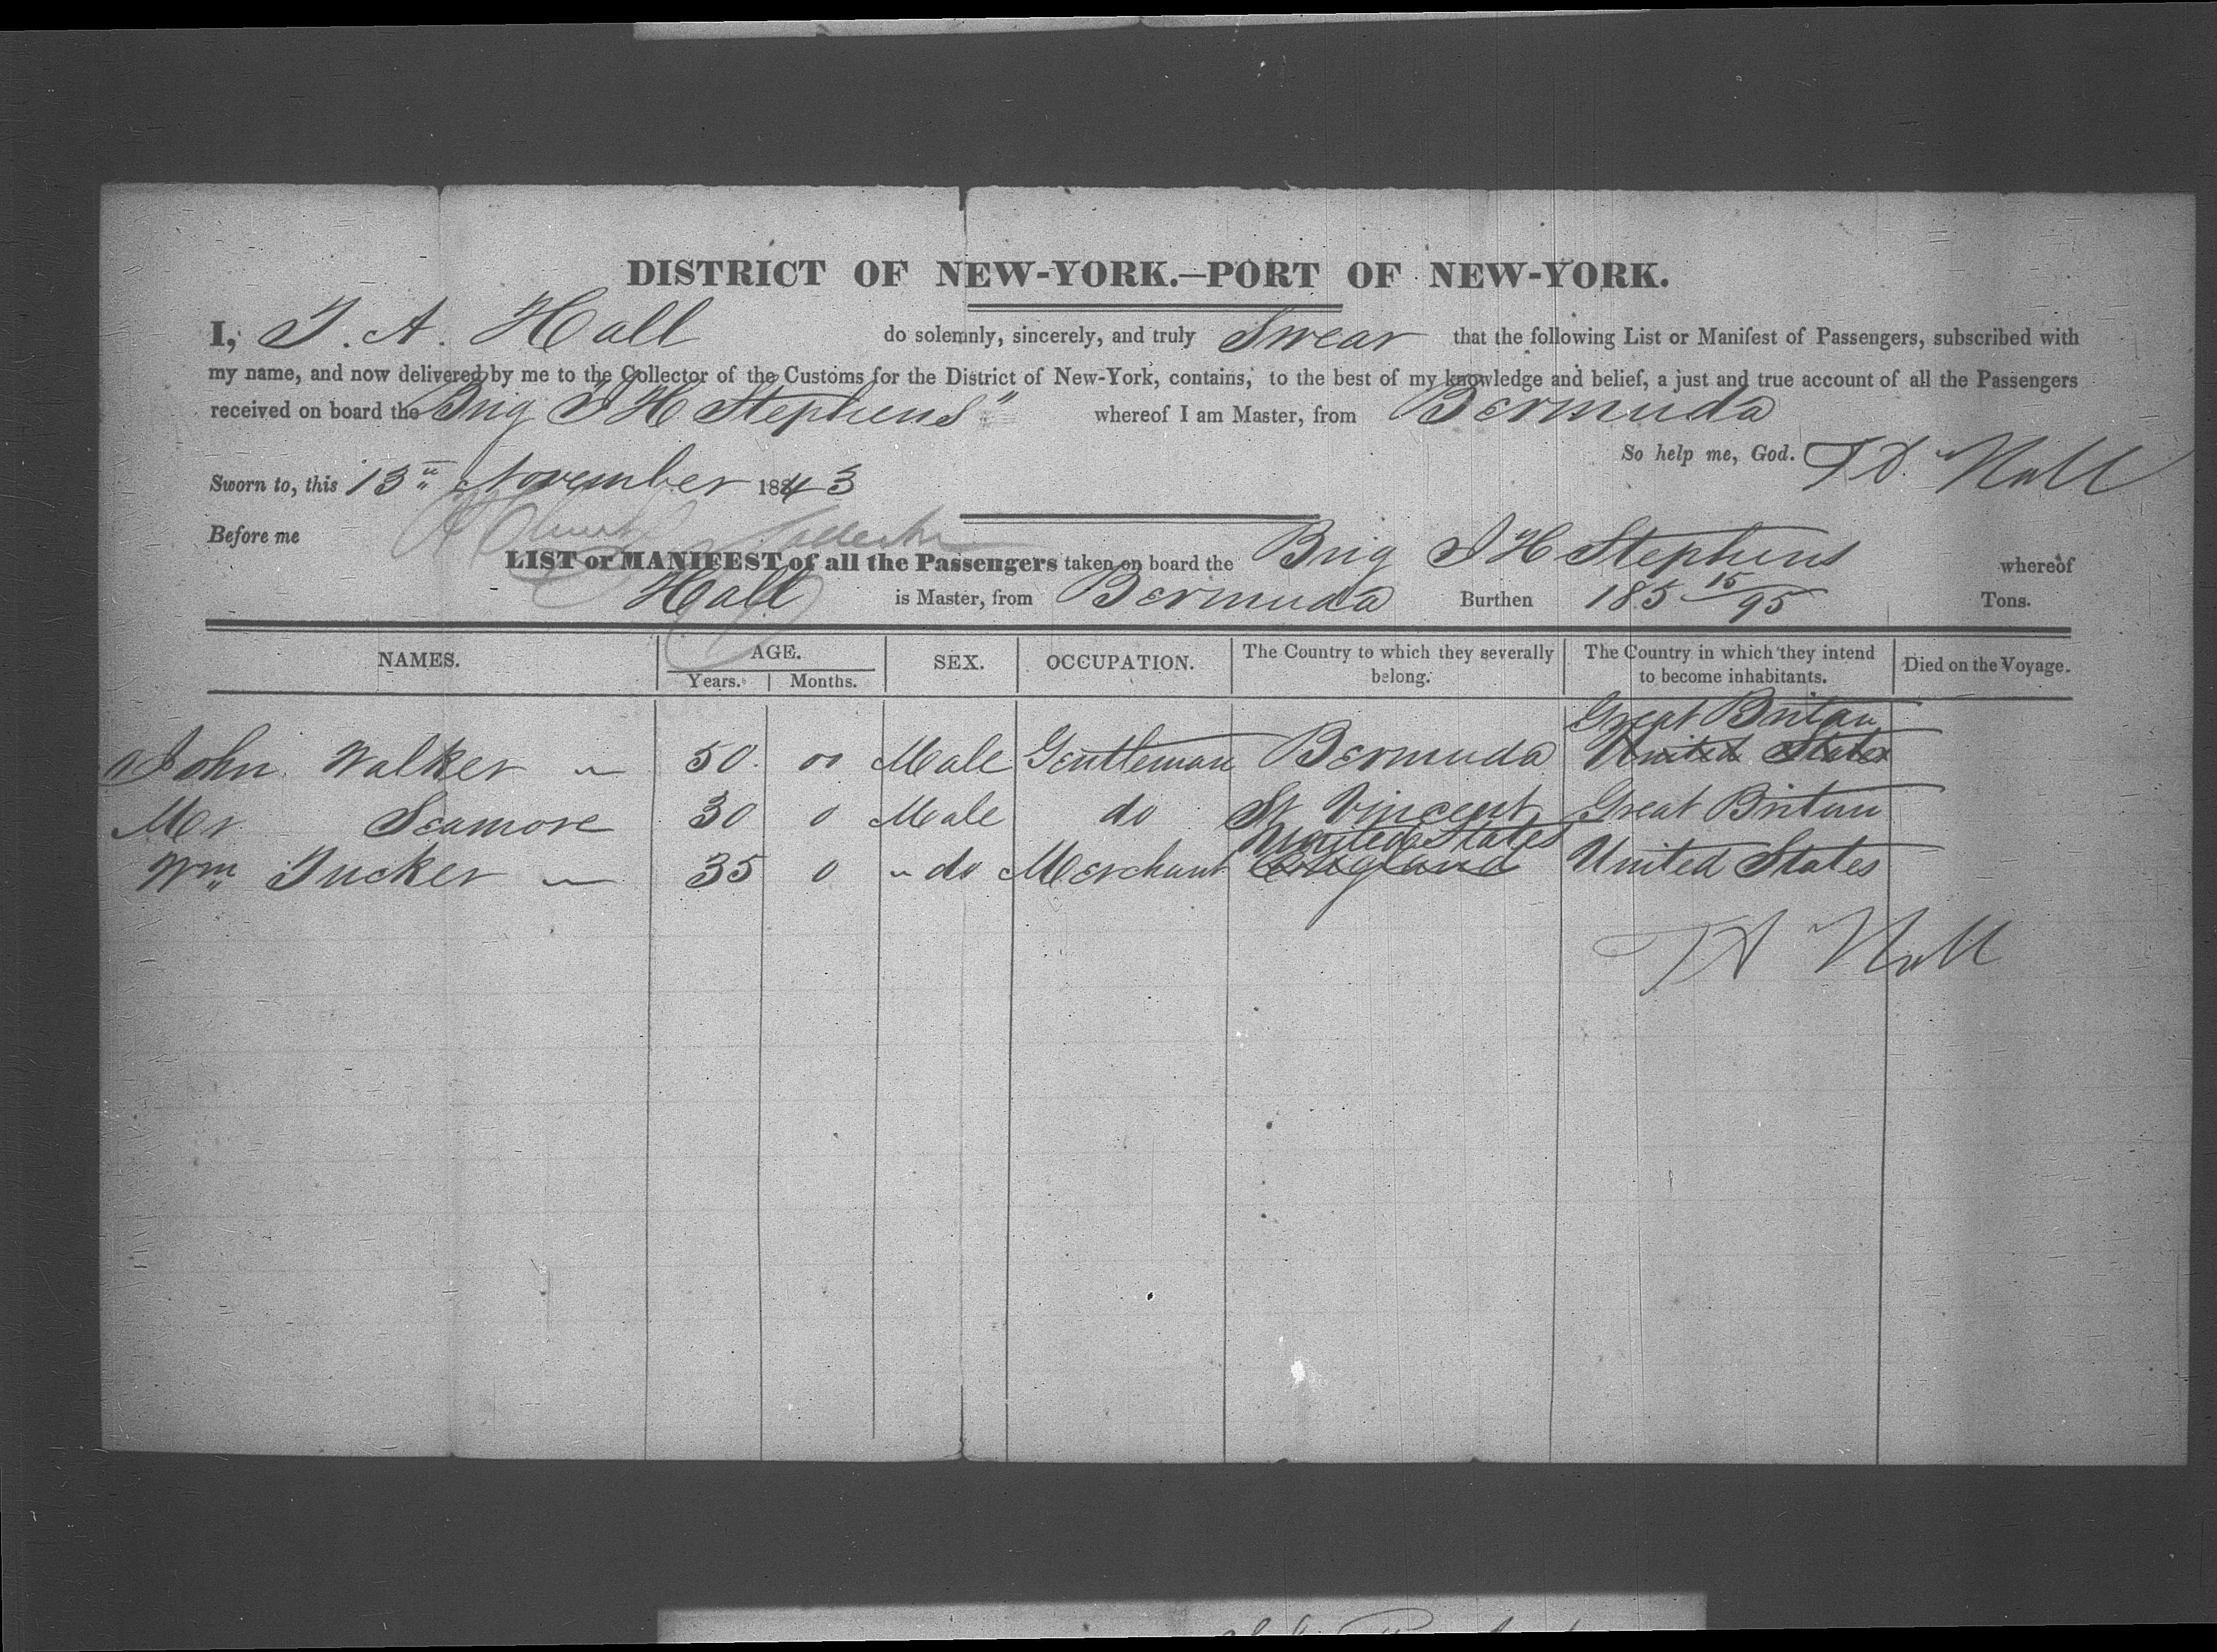 DISTRICT OF NEW-YORK.—PORT OF NEW-YORK.
I, T. A. Hall do solemnly, sincerely, and truly Swear that the following List or Manifest of Passengers, subscribed with
my name, and now delivered by me to the Collector of the Customs for the District of New-York, contains, to the best of my knowledge and belief, a just and true account of all the Passengers
received on board the Brig I H Stephens" whereof I am Master, from Bermuda
So help me, God. T A Hall
Sworn to, this 13" November 1843
Before me
LIST or MANIFEST of all the Passengers taken on board the Brig I H Stephens whereof
Hall is Master, from Bermuda Burthen 185 15/95 Tons.
NAMES. AGE. SEX. OCCUPATION. The Country to which they severally belong. The Country in which they intend to become inhabitants. Died on the Voyage.
Years. Months.
Great Britan
John Walker 50 00 Male Gentleman Bermuda United States
Mr Seamore 30 0 Male do St Vincent Great Britan
United States
Wm Tucker 35 0 do Merchant England United States
T A Hall